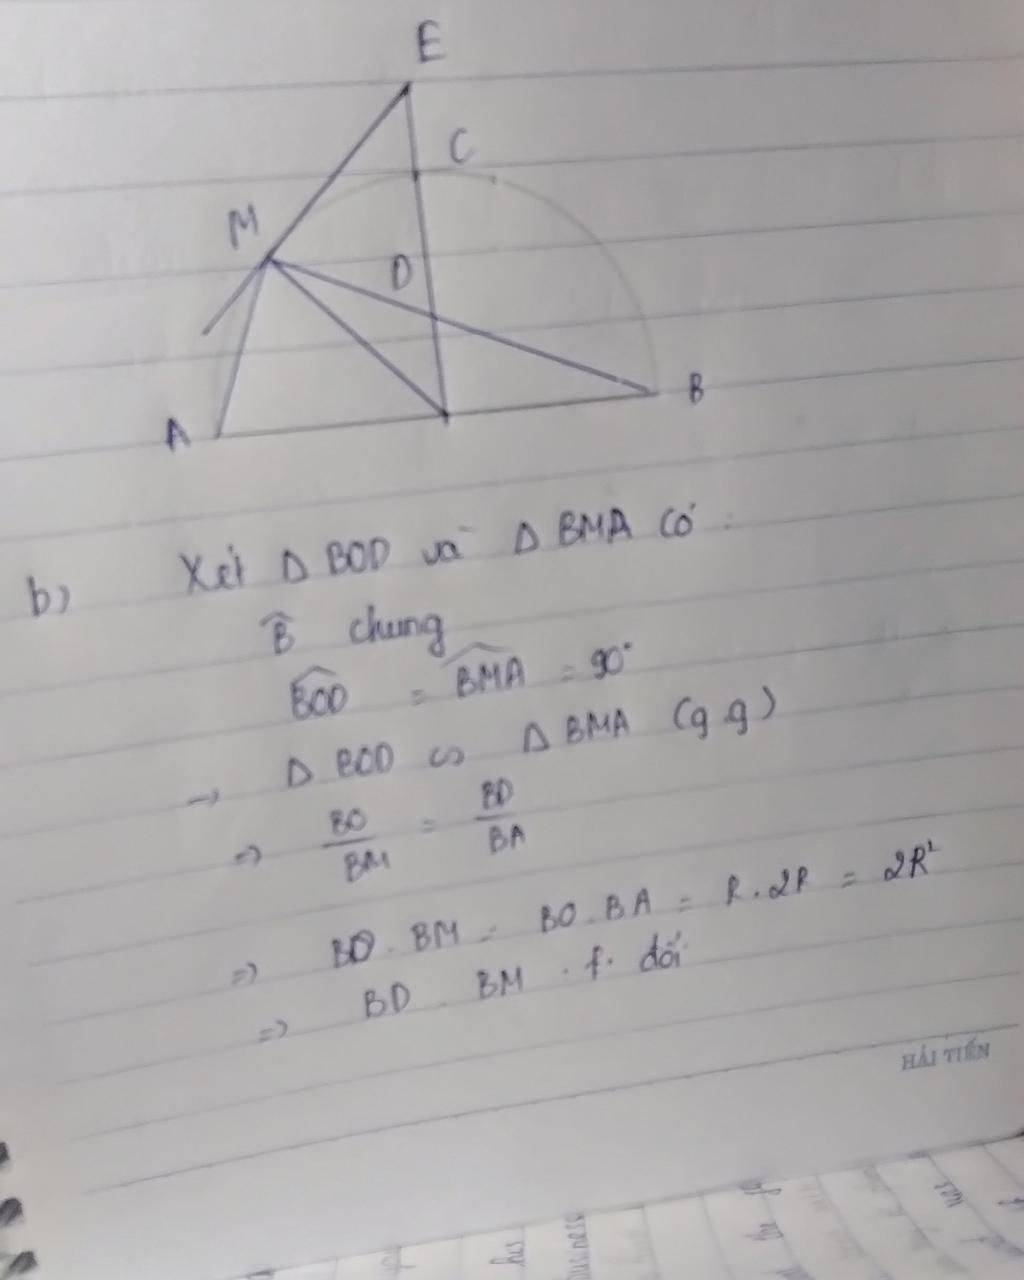 E
C
M
D
A
B
b) Xét Δ BOD và Δ BMA có :
B̂ chung
BOD = BMA = 90°
→ Δ BOD ∽ Δ BMA (g.g)
=> BO/BM = BD/BA
=> BD . BM = BO . BA = R . 2R = 2R²
=> BD . BM . f. đổi
HẢI TIẾN
his
business
the